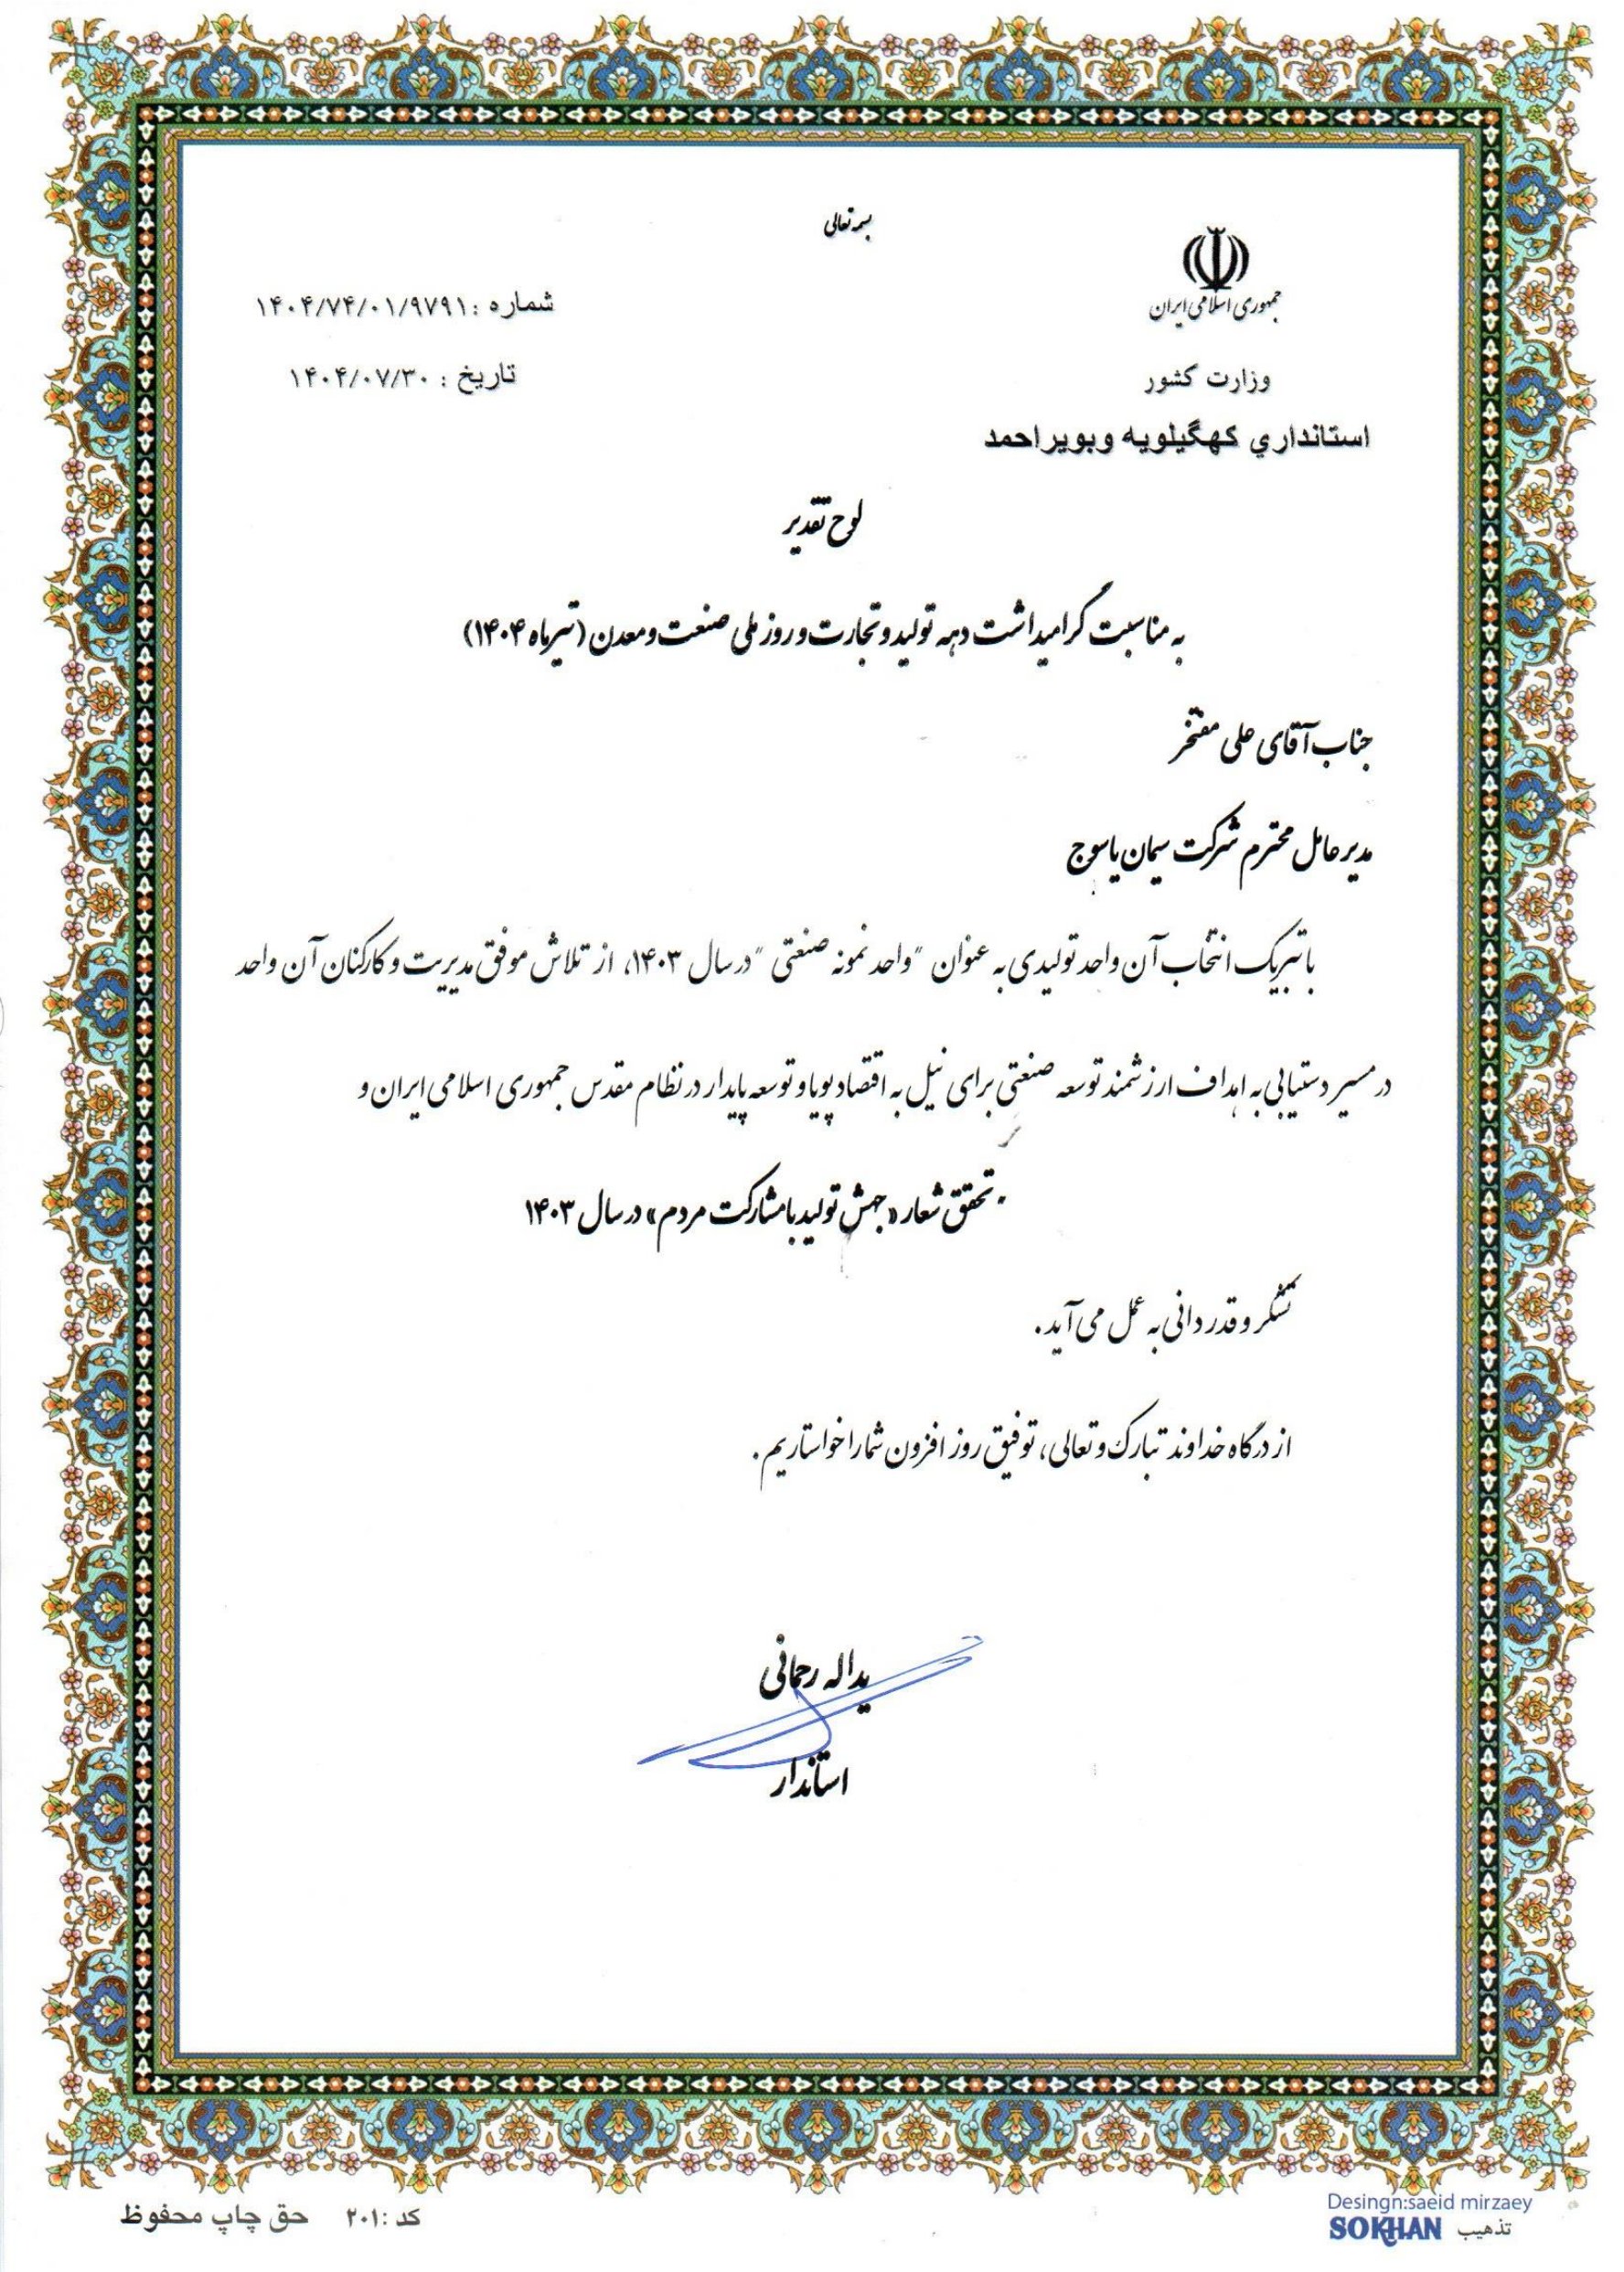 بسمه تعالی
جمهوری اسلامی ایران
شماره : ۱۴۰۴/۷۴/۰۱/۹۷۹۱
وزارت کشور
تاریخ : ۱۴۰۴/۰۷/۳۰
استانداري کهگیلویه وبویراحمد
لوح تقدیر
به مناسبت گرامیداشت دهه تولید و تجارت و روز ملی صنعت و معدن (تیرماه ۱۴۰۴)
جناب آقای علی مفتخر
مدیرعامل محترم شرکت سیمان یاسوج
با تبریک انتخاب آن واحد تولیدی به عنوان "واحد نمونه صنعتی" در سال ۱۴۰۳، از تلاش موفق مدیریت و کارکنان آن واحد
در مسیر دستیابی به اهداف ارزشمند توسعه صنعتی برای نیل به اقتصاد پویا و توسعه پایدار در نظام مقدس جمهوری اسلامی ایران و
تحقق شعار «جهش تولید با مشارکت مردم» در سال ۱۴۰۳
تشکر و قدردانی به عمل می آید.
از درگاه خداوند تبارک و تعالی، توفیق روز افزون شما را خواستاریم.
یداله رحمانی
استاندار
Desingn:saeid mirzaey
تذهیب SOKHAN
کد :۲۰۱ حق چاپ محفوظ